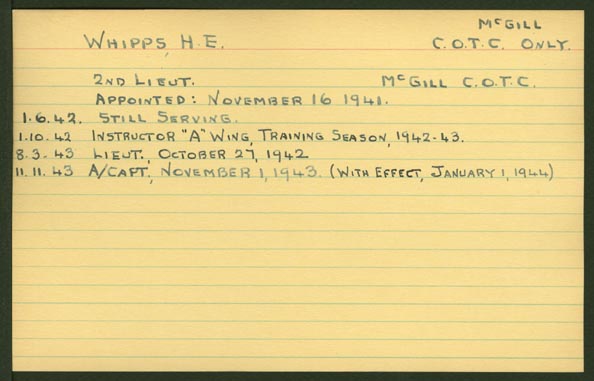 McGILL
WHIPPS, H.E. C.O.T.C. ONLY.
2ND LIEUT. McGILL C.O.T.C.
APPOINTED: NOVEMBER 16 1941.
1.6.42. STILL SERVING.
1.10.42 INSTRUCTOR "A" WING, TRAINING SEASON, 1942-43.
8.3.43 LIEUT., OCTOBER 27, 1942
11.11.43 A/CAPT, NOVEMBER 1, 1943. (WITH EFFECT, JANUARY 1, 1944)